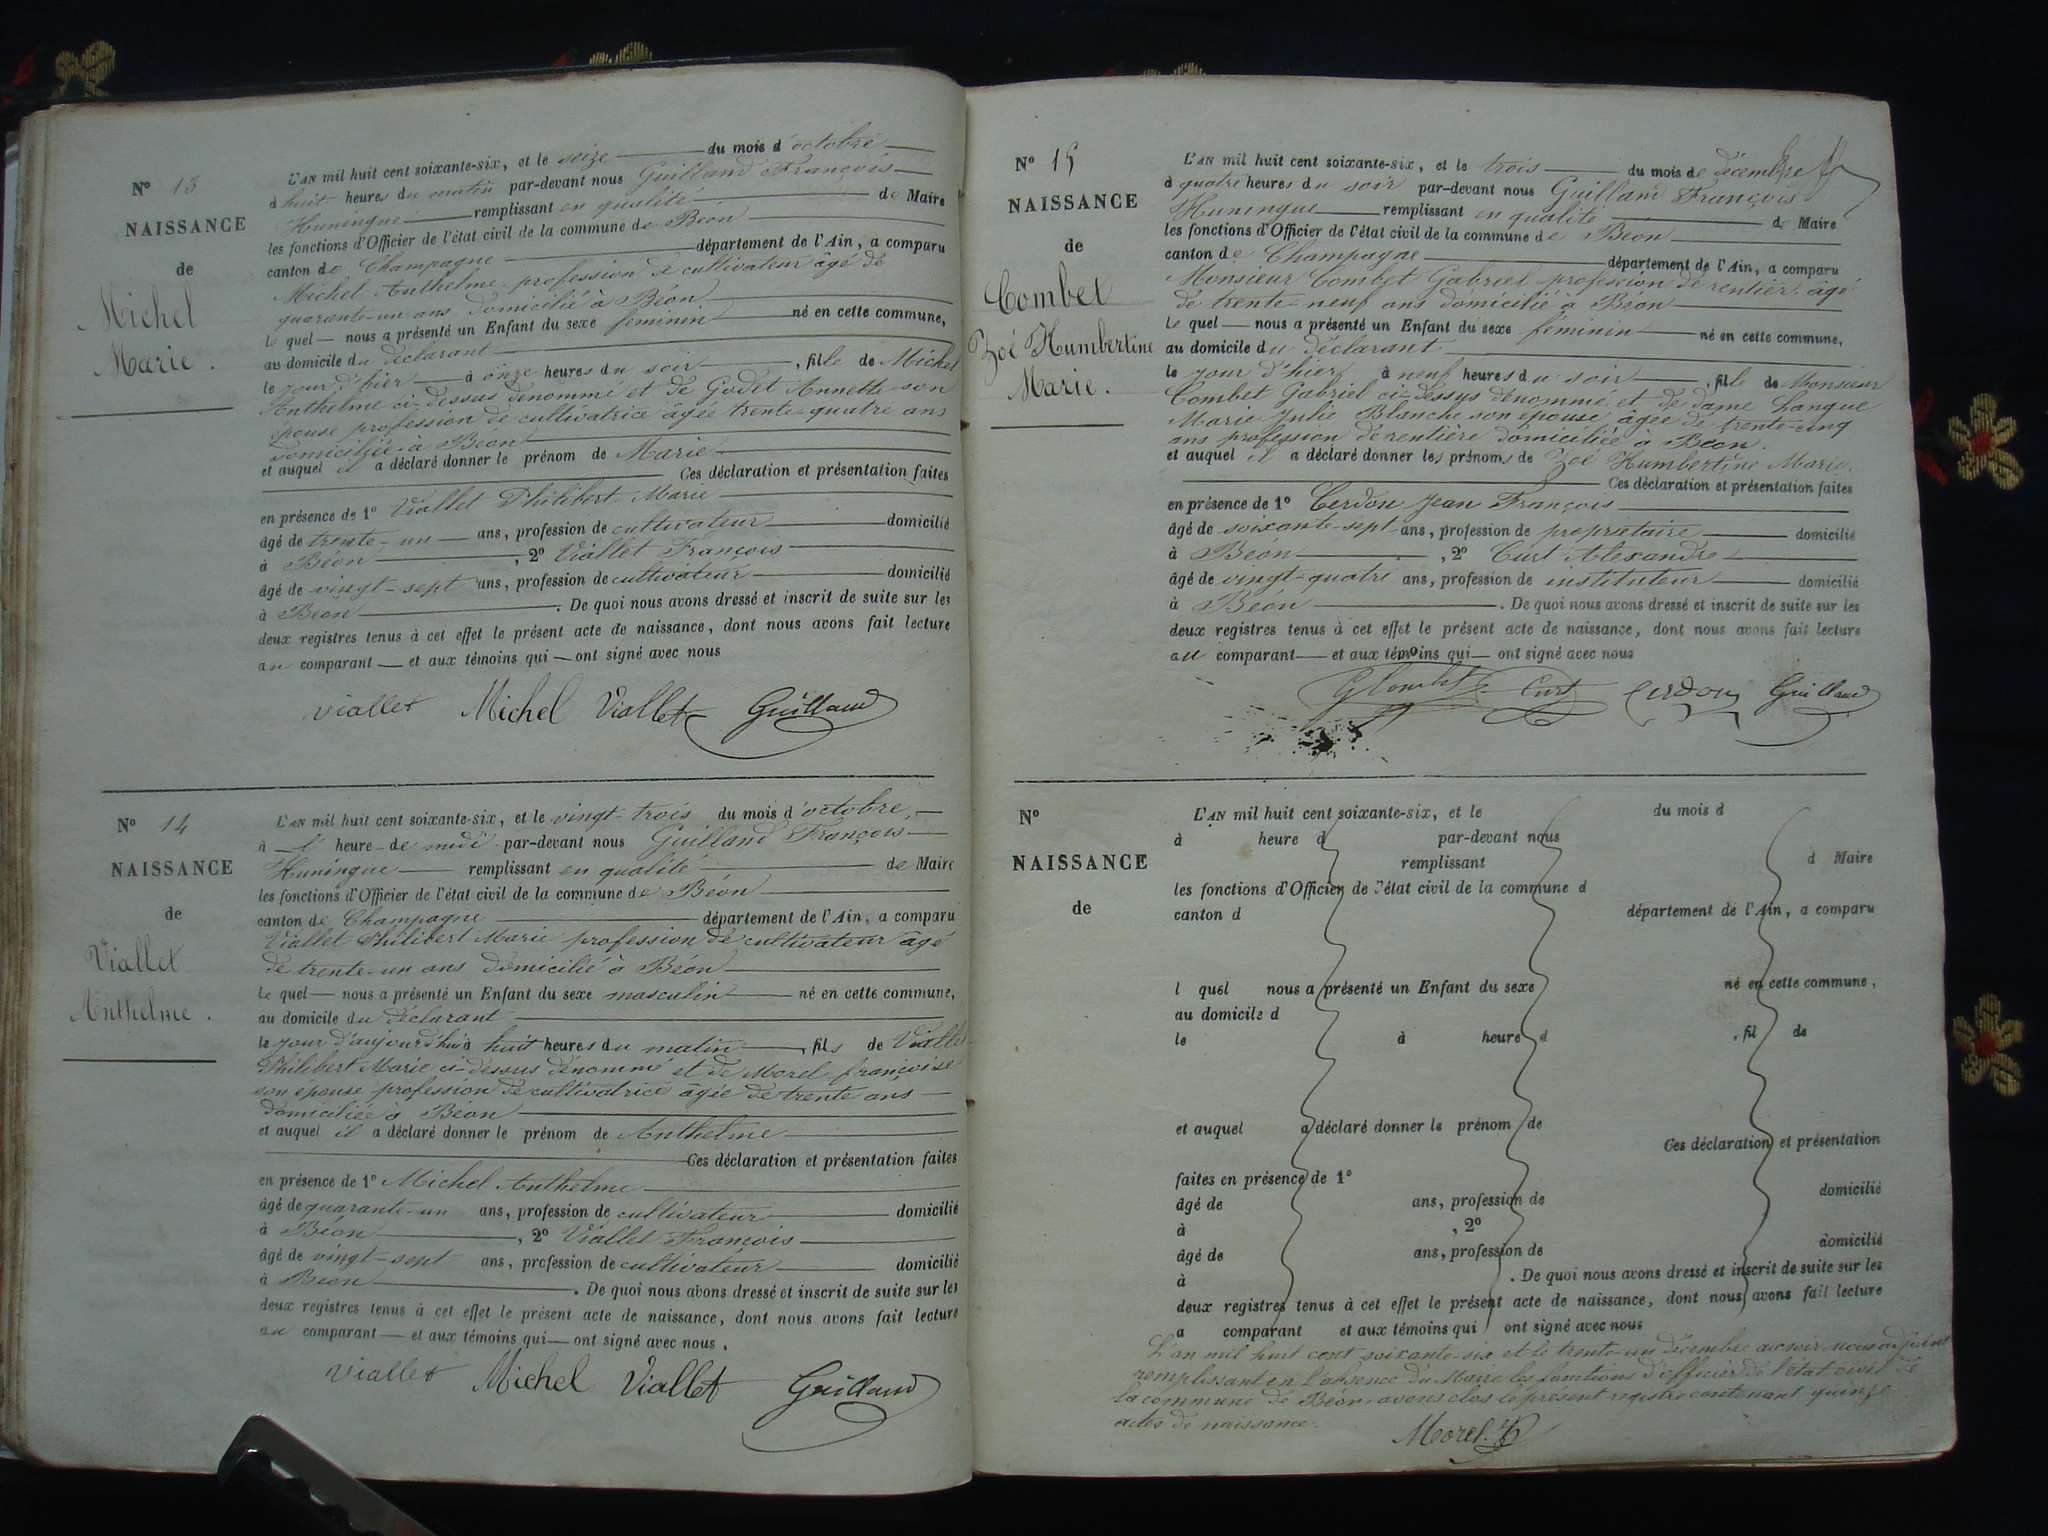 N° 13
NAISSANCE
de
Michel
Marie.
L'AN mil huit cent soixante-six, et le seize du mois d'octobre
à huit heures du matin par-devant nous Guilland François
Huningue remplissant en qualité de Maire
les fonctions d'Officier de l'état civil de la commune de Béon
canton de Champagne département de l'Ain, a comparu
Michel Anthelme profession de cultivateur âgé de
quarante-un ans domicilié à Béon
le quel nous a présenté un Enfant du sexe féminin né en cette commune,
au domicile du déclarant
le jour d'hier à onze heures du soir, fille de Michel
Anthelme ci-dessus dénommé et de Godet Annette son
épouse profession de cultivatrice âgée trente-quatre ans
domiciliée à Béon
et auquel il a déclaré donner le prénom de Marie
Ces déclaration et présentation faites
en présence de 1° Viallet Philibert Marie
âgé de trente-un ans, profession de cultivateur domicilié
à Béon, 2° Viallet François
âgé de vingt-sept ans, profession de cultivateur domicilié
à Béon. De quoi nous avons dressé et inscrit de suite sur les
deux registres tenus à cet effet le présent acte de naissance, dont nous avons fait lecture
au comparant et aux témoins qui ont signé avec nous
Viallet Michel Viallet Guilland
N° 14
NAISSANCE
de
Viallet
Anthelme.
L'AN mil huit cent soixante-six, et le vingt-trois du mois d'octobre,
à l' heure de midi par-devant nous Guilland François
Huningue remplissant en qualité de Maire
les fonctions d'Officier de l'état civil de la commune de Béon
canton de Champagne département de l'Ain, a comparu
Viallet Philibert Marie profession de cultivateur âgé
de trente-un ans domicilié à Béon
le quel nous a présenté un Enfant du sexe masculin né en cette commune,
au domicile du déclarant
le jour d'aujourd'hui à huit heures du matin, fils de Viallet
Philibert Marie ci-dessus dénommé et de Morel françoise
son épouse profession de cultivatrice âgée de trente ans
domiciliée à Béon
et auquel il a déclaré donner le prénom de Anthelme
Ces déclaration et présentation faites
en présence de 1° Michel Anthelme
âgé de quarante-un ans, profession de cultivateur domicilié
à Béon, 2° Viallet François
âgé de vingt-sept ans, profession de cultivateur domicilié
à Béon. De quoi nous avons dressé et inscrit de suite sur les
deux registres tenus à cet effet le présent acte de naissance, dont nous avons fait lecture
au comparant et aux témoins qui ont signé avec nous.
Viallet Michel Viallet Guilland
N° 15
NAISSANCE
de
Combet
Zoé Humbertine
Marie.
L'AN mil huit cent soixante-six, et le trois du mois de décembre
à quatre heures du soir par-devant nous Guilland François
Huningue remplissant en qualité de Maire
les fonctions d'Officier de l'état civil de la commune de Béon
canton de Champagne département de l'Ain, a comparu
Monsieur Combet Gabriel profession de rentier âgé
de trente-neuf ans domicilié à Béon
le quel nous a présenté un Enfant du sexe féminin né en cette commune,
au domicile du déclarant
le jour d'hier à neuf heures du soir, fille de Monsieur
Combet Gabriel ci-dessus dénommé et de dame Hangue
Marie Julie Blanche son épouse âgée de trente-cinq
ans profession de rentière domiciliée à Béon.
et auquel il a déclaré donner les prénoms de Zoé Humbertine Marie.
Ces déclaration et présentation faites
en présence de 1° Cerdon Jean François
âgé de soixante-sept ans, profession de propriétaire domicilié
à Béon, 2° Curt Alexandre
âgé de vingt-quatre ans, profession de instituteur domicilié
à Béon. De quoi nous avons dressé et inscrit de suite sur les
deux registres tenus à cet effet le présent acte de naissance, dont nous avons fait lecture
au comparant et aux témoins qui ont signé avec nous
G Combet Curt Cerdon Guilland
N°
NAISSANCE
de
L'AN mil huit cent soixante-six, et le du mois d
à heure d par-devant nous
remplissant d Maire
les fonctions d'Officier de l'état civil de la commune d
canton d département de l'Ain, a comparu
l quel nous a présenté un Enfant du sexe né en cette commune,
au domicile d
le à heure d, fil de
et auquel a déclaré donner le prénom de
Ces déclaration et présentation
faites en présence de 1°
âgé de ans, profession de domicilié
à, 2°
âgé de ans, profession de domicilié
à. De quoi nous avons dressé et inscrit de suite sur les
deux registres tenus à cet effet le présent acte de naissance, dont nous avons fait lecture
a comparant et aux témoins qui ont signé avec nous
L'an mil huit cent soixante-six et le trente-un décembre au soir nous adjoint
remplissant en l'absence du Maire les fonctions d'officier de l'état civil de
la commune de Béon avons clos le présent registre contenant quinze
actes de naissance.
Morel